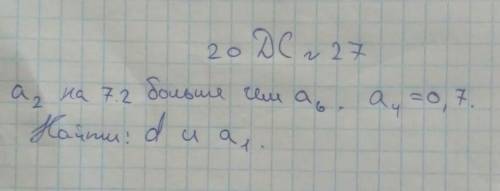 20 DC ~ 27
a₂ на 7.2 больше чем a₆. a₄ = 0,7.
Найти: d и a₁.